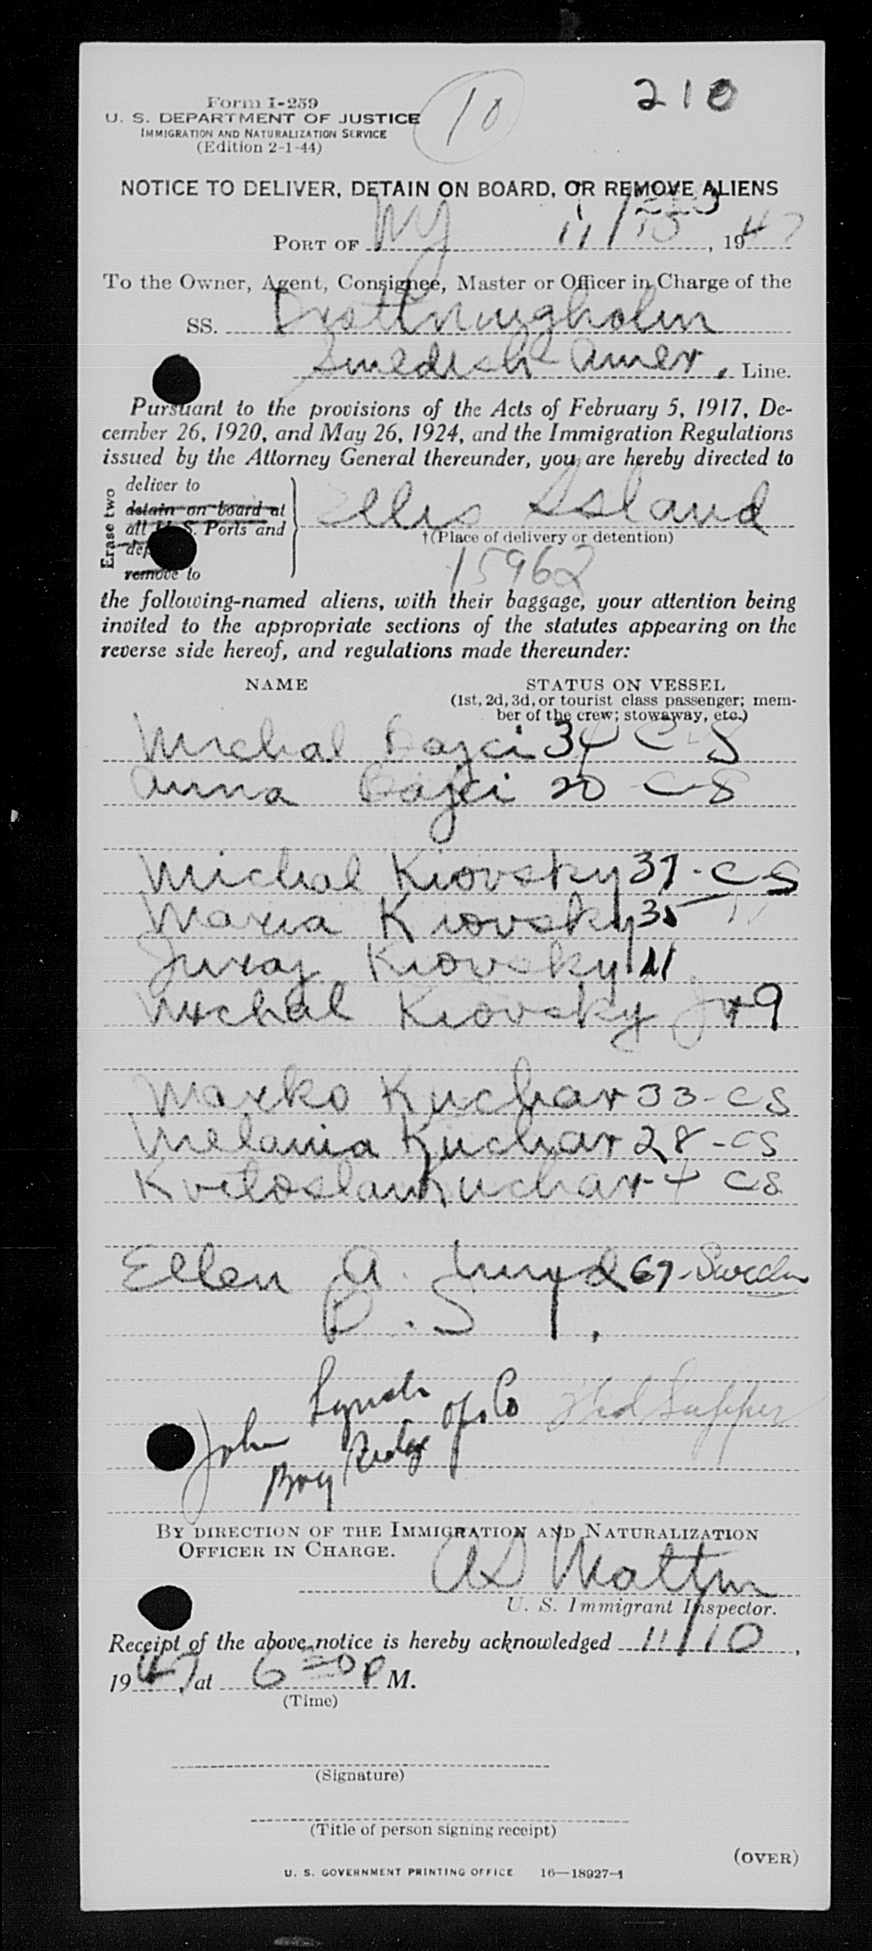 210
Form I-259
10
U. S. DEPARTMENT OF JUSTICE
IMMIGRATION AND NATURALIZATION SERVICE
(Edition 2-1-44)
NOTICE TO DELIVER, DETAIN ON BOARD, OR REMOVE ALIENS
PORT OF NY 11/10, 1947
To the Owner, Agent, Consignee, Master or Officer in Charge of the
SS. Drottningholm
Swedish Amer. Line.
Pursuant to the provisions of the Acts of February 5, 1917, De-
cember 26, 1920, and May 26, 1924, and the Immigration Regulations
issued by the Attorney General thereunder, you are hereby directed to
Erase two
deliver to
detain on board at
all U. S. Ports and
remove to
Ellis Island
†(Place of delivery or detention)
15962
the following-named aliens, with their baggage, your attention being
invited to the appropriate sections of the statutes appearing on the
reverse side hereof, and regulations made thereunder:
NAME STATUS ON VESSEL
(1st, 2d, 3d, or tourist class passenger; mem-
ber of the crew; stowaway, etc.)
Michal Bajci 34 C-S
Anna Bajci 20 C-S
Michal Kiovsky 37-CS
Maria Kiovsky 35 "
Juraj Kiovsky 11
Michal Kiovsky Jr 9
Marko Kuchar 33-CS
Melania Kuchar 28-CS
Kvetoslav Kuchar 4 CS
Ellen A. 67-Sweden
B.S.I.
John Lynch Ofs Co
Bay Ridge
BY DIRECTION OF THE IMMIGRATION AND NATURALIZATION
OFFICER IN CHARGE.
U. S. Immigrant Inspector.
Receipt of the above notice is hereby acknowledged 11/10,
1947, at 6 30 P M.
(Time)
(Signature)
(Title of person signing receipt)
(OVER)
U. S. GOVERNMENT PRINTING OFFICE 16—18927-1